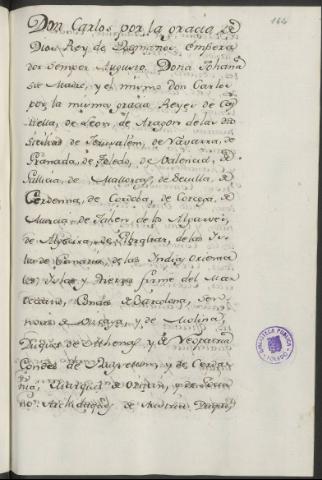 164
Don Carlos por la gracia de
Dios Rey de Romanos, Empera
dor semper Augusto. Doña Johana
su Madre, y el mismo don Carlos
por la misma gracia Reyes de Cas
tilla, de Leon, de Aragon de las dos
Sicilias de Jerusalem, de Navarra, de
Granada, de Toledo, de Valencia, de
Galicia, de Mallorcas, de Sevilla, de
Cerdenna, de Cordoba, de Corcega, de
Murcia, de Jahen, de los Algarves,
de Algecira, de Gibraltar, de las Is
las de Canaria, de las Indias Orienta
les, Islas, y tierra firme del Mar
Occeano, Condes de Barcelona, Sen
nores de Vizcaya, y de Molina,
Duques de Athenas, y de Neopatria
Condes de Ruysellon, y de Cerda
nia, Marqueses de Oristan, y de Gocia
no Archiduques de Austria Duques
BIBLIOTECA PUBLICA
TOLEDO